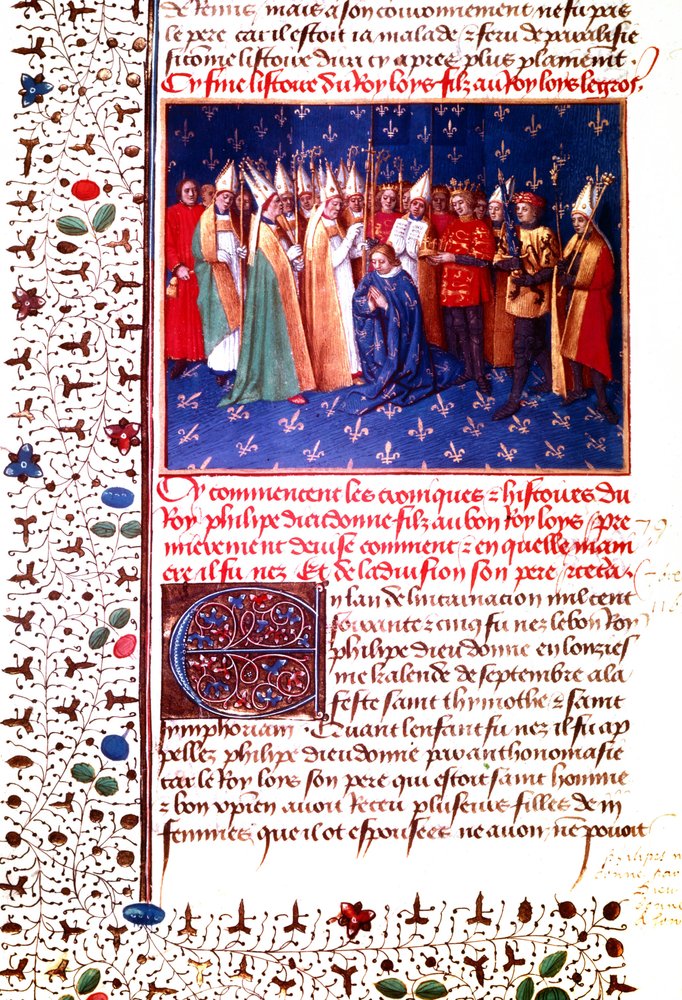 de Reims, mais a son couronnement ne fu pas
le pere car il estoit ia malade ⁊ feru de paralisie
si come listoire dira cy apres plus plainemt .
Cy fine listoire du Roy loys filz au Roy loys le gros.
Cy commencent les croniques ⁊ histoires du
Roy phelipe dieudonne filz au bon Roy loys, pre
mierement devise comment ⁊ en quelle mani
ere il fu nez Et de la vision son pere
En lan de lincarnacion mil cent
soixante ⁊ cinq fu nez le bon Roy
phelipe dieudonne en lonzies
me kalende de septembre a la
feste saint thymothe ⁊ saint
symphorian . Quant lenfant fu nez il fu ap
pellez phelipe dieudonne par anthonomasie
car le Roy loys son pere qui estoit saint homme
⁊ bon xpien avoit Receu plusieurs filles de iii
femmes que il ot espousees ne avoir ne povoit